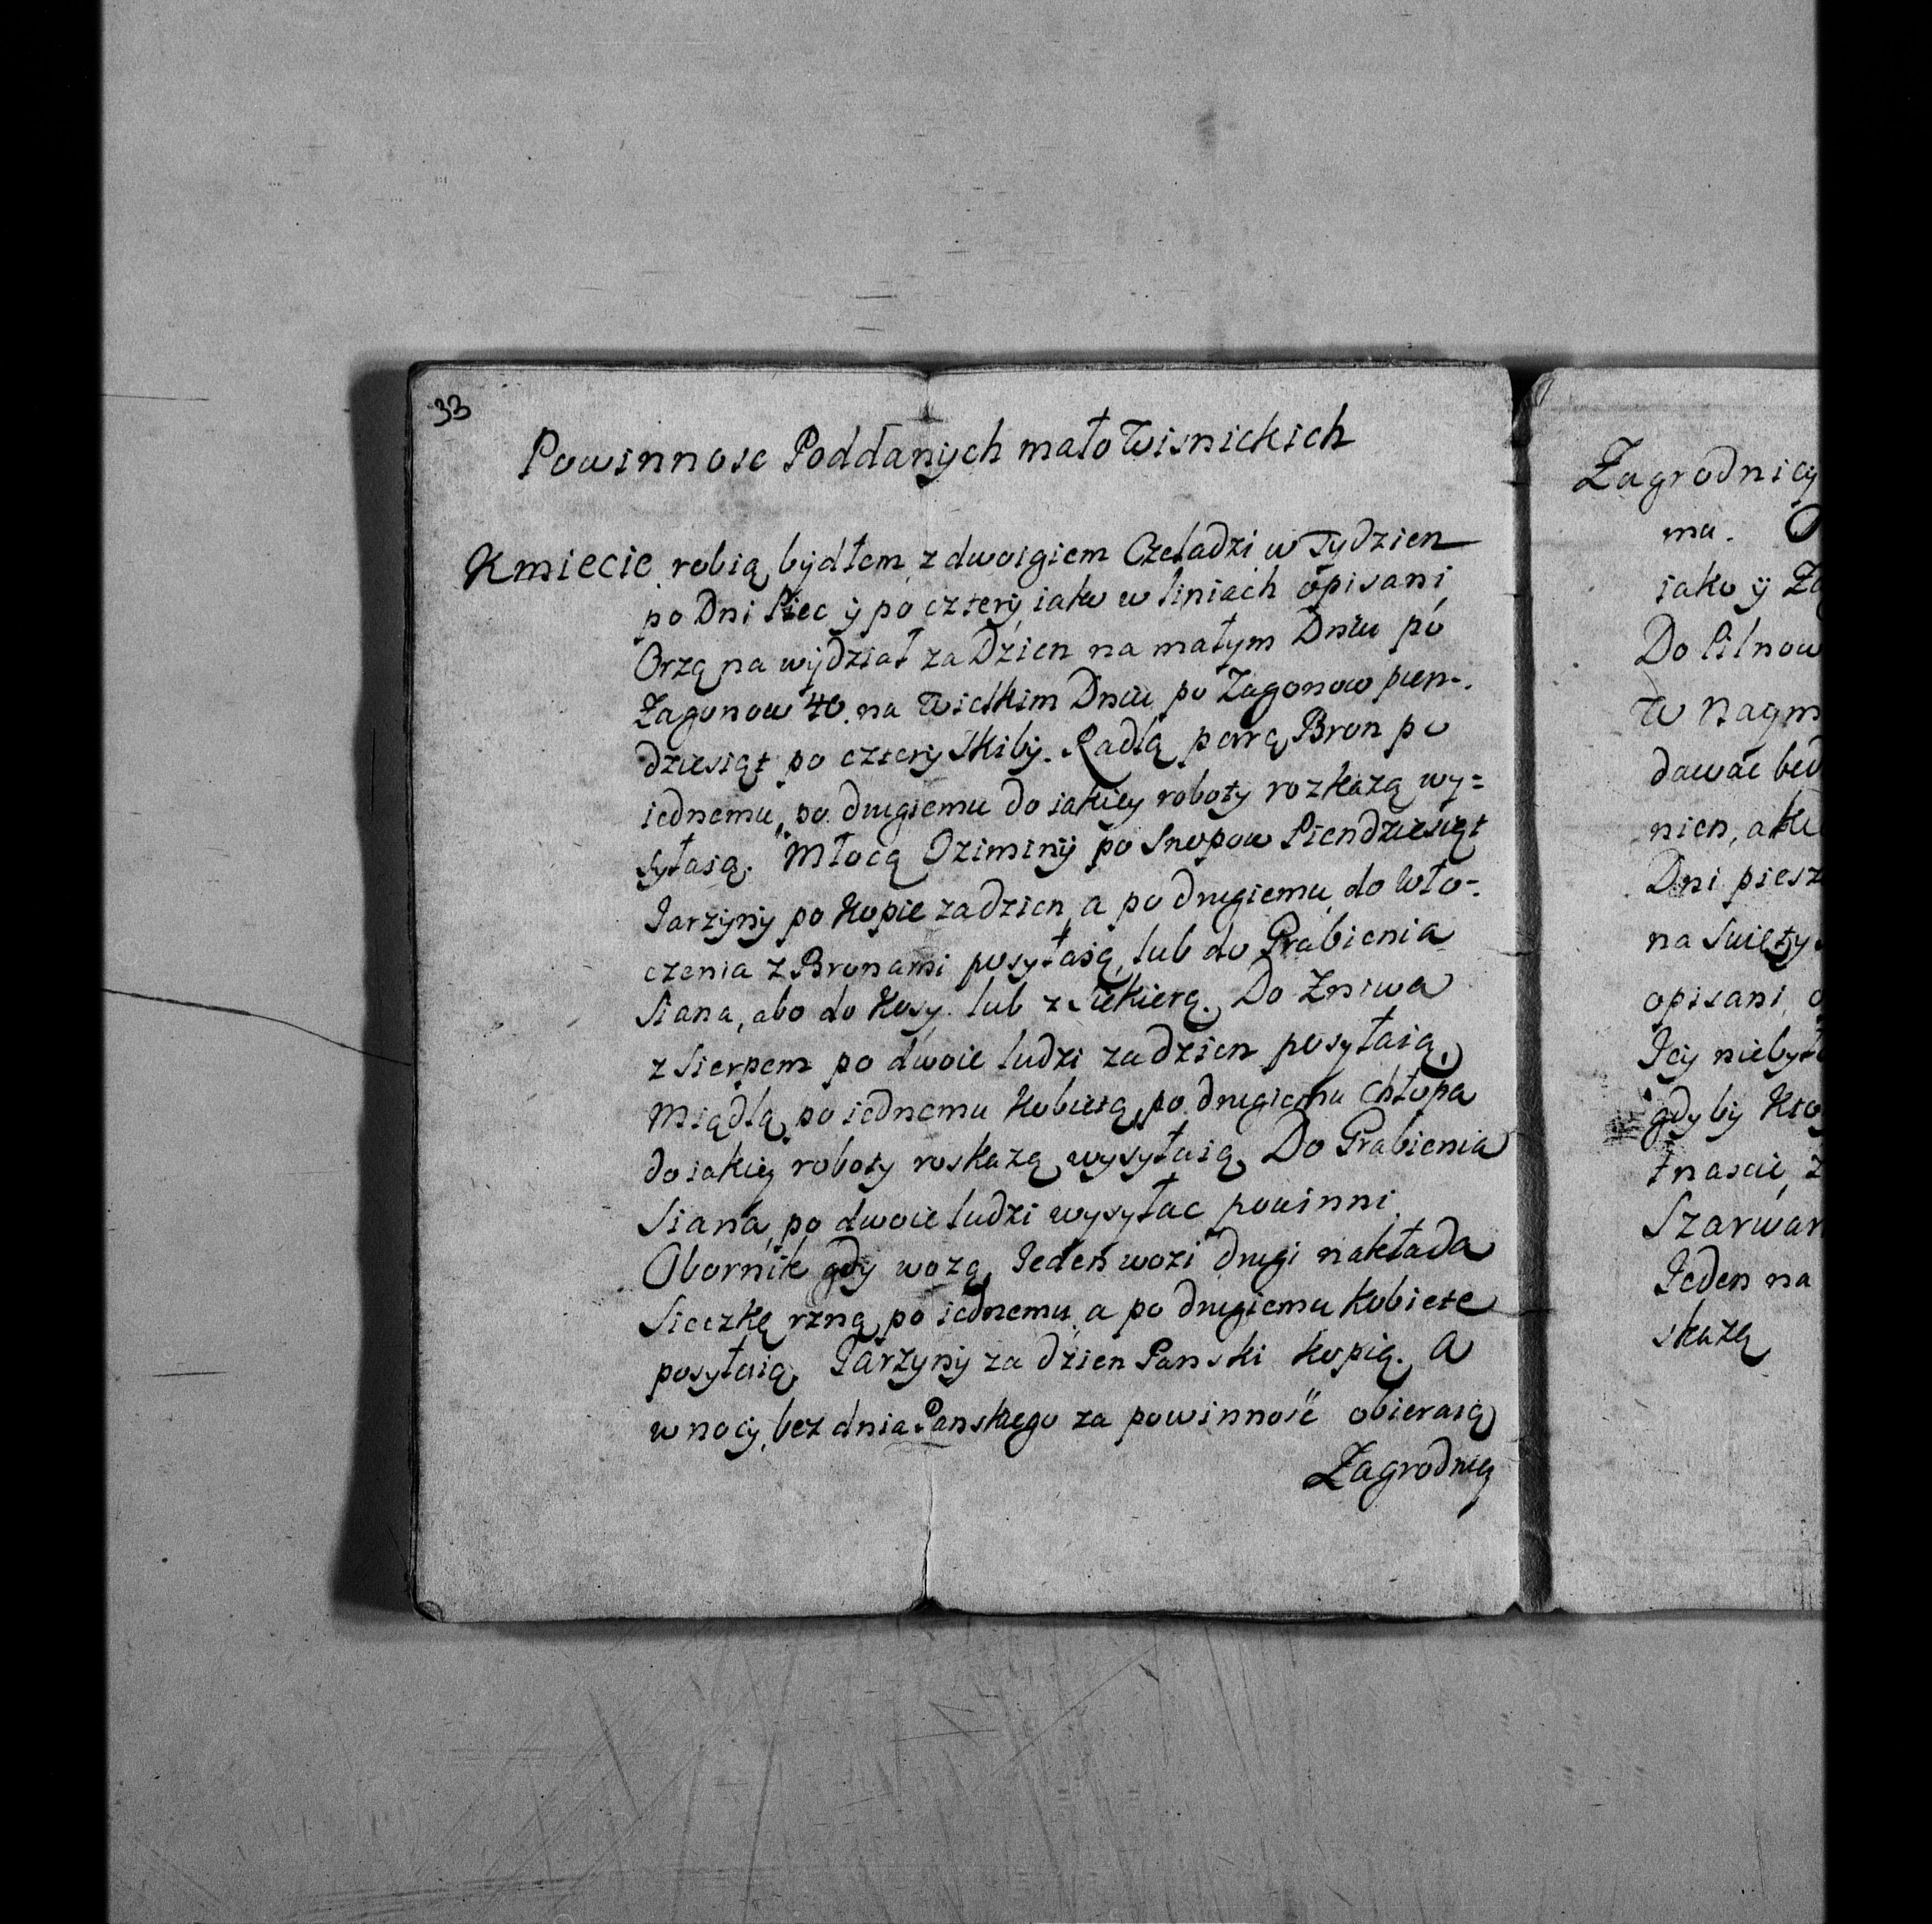 33
Powinnosc Poddanych małoWisnickich
Kmiecie robią bydłem z dwoigiem Czeladzi w Tydzien
po Dni Piec ÿ po czterÿ iako w liniach opisani
Orzą na wÿdział za Dzien na małym Dniu po
Zagonow 40. na Wielkim Dniu po Zagonow pien-
dziesiąt po czterÿ Skibÿ. Radlą parrą Bron po
iednemu, po drugiemu do iakiey roboty rozkazą wy=
syłaią. Młocą Oziminÿ po Snopow Piendziesiąt
Jarzynÿ po Kopie za dzien a po drugiemu do Wło-
czenia z Bronami posyłaią, lub do Grabienia
Siana, abo do Kosy lub z Siekierą. Do Zniwa
z Sierpem po dwoie ludzi za dzien posyłaią,
Miądlą po iednemu Kobietą, po drugiemu Chłopa
do iakiey roboty roskazą wysyłaią Do Grabienia
Siana, po dwoie ludzi wysyłac powinni.
Obornik gdy wozą, Jeden wozi drugi nakłada
Sieczkę rzną po iednemu a po drugiemu Kobiete
posyłaią, Jarzynÿ za dzien Panski kopią. A
w nocÿ, bez dnia Panskiego za powinność obieraią
Zagrodnicy
Zagrodnicy
ma.
iako ÿ
Do Pilnow
W Nagm
dawać
nien,
Dni piesz
na Swięty
opisani,
Jey niebył
gdy by
tnascie,
Szarwar
Jeden na
skazą